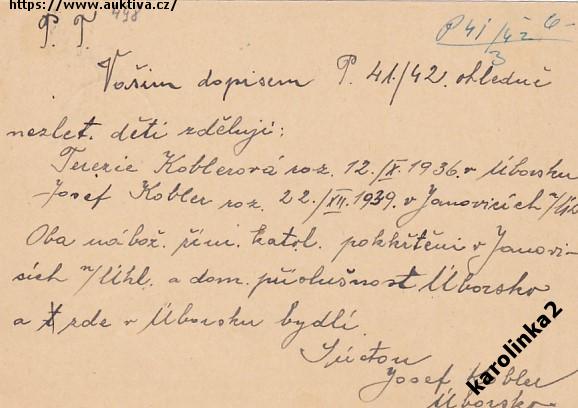 https://www.auktiva.cz/
P. T. 498
P 41/42 6-
3
Vaším dopisem P. 41./42. ohledně
nezlet. dětí zděluji:
Terezie Koblerová roz. 12./X. 1936. v Úborsku
Josef Kobler roz. 22./XII. 1939. v Janovicích n/Úh.
Oba nábož. řím. katol. pokřtěni v Janovi-
cích n/Úhl. a dom. příslušnost Úborsko
a zde v Úborsku bydlí.
S úctou
Josef Kobler
Úborsko
karolinka2